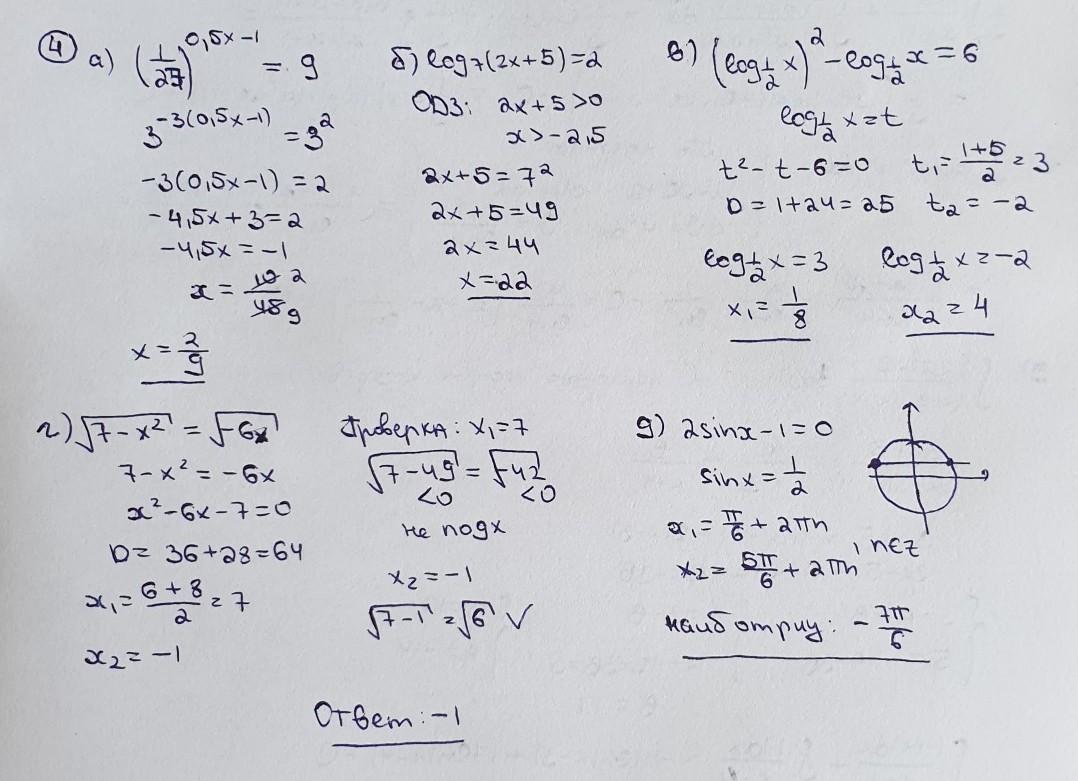 ④ а) (1/27)^(0,5x-1) = 9
3^(-3(0,5x-1)) = 3^2
-3(0,5x-1) = 2
-4,5x+3=2
-4,5x=-1
x = 10 2/45 9
x = 2/9
б) log₇(2x+5)=2
ОДЗ: 2x+5>0
x>-2,5
2x+5=7²
2x+5=49
2x=44
x=22
в) (log_(1/2) x)² - log_(1/2) x = 6
log_(1/2) x=t
t²-t-6=0 t₁=(1+5)/2=3
D=1+24=25 t₂=-2
log_(1/2) x=3 log_(1/2) x=-2
x₁=1/8 x₂=4
г) √(7-x²) = √(-6x)
7-x²=-6x
x²-6x-7=0
D=36+28=64
x₁=(6+8)/2=7
x₂=-1
Проверка: x₁=7
√(7-49)=√(-42)
<0 <0
не подх
x₂=-1
√(7-1)=√6 ✓
Ответ: -1
д) 2sinx-1=0
sinx=1/2
x₁=π/6+2πn
x₂=5π/6+2πn, n∈z
наиб отриц: -7π/6